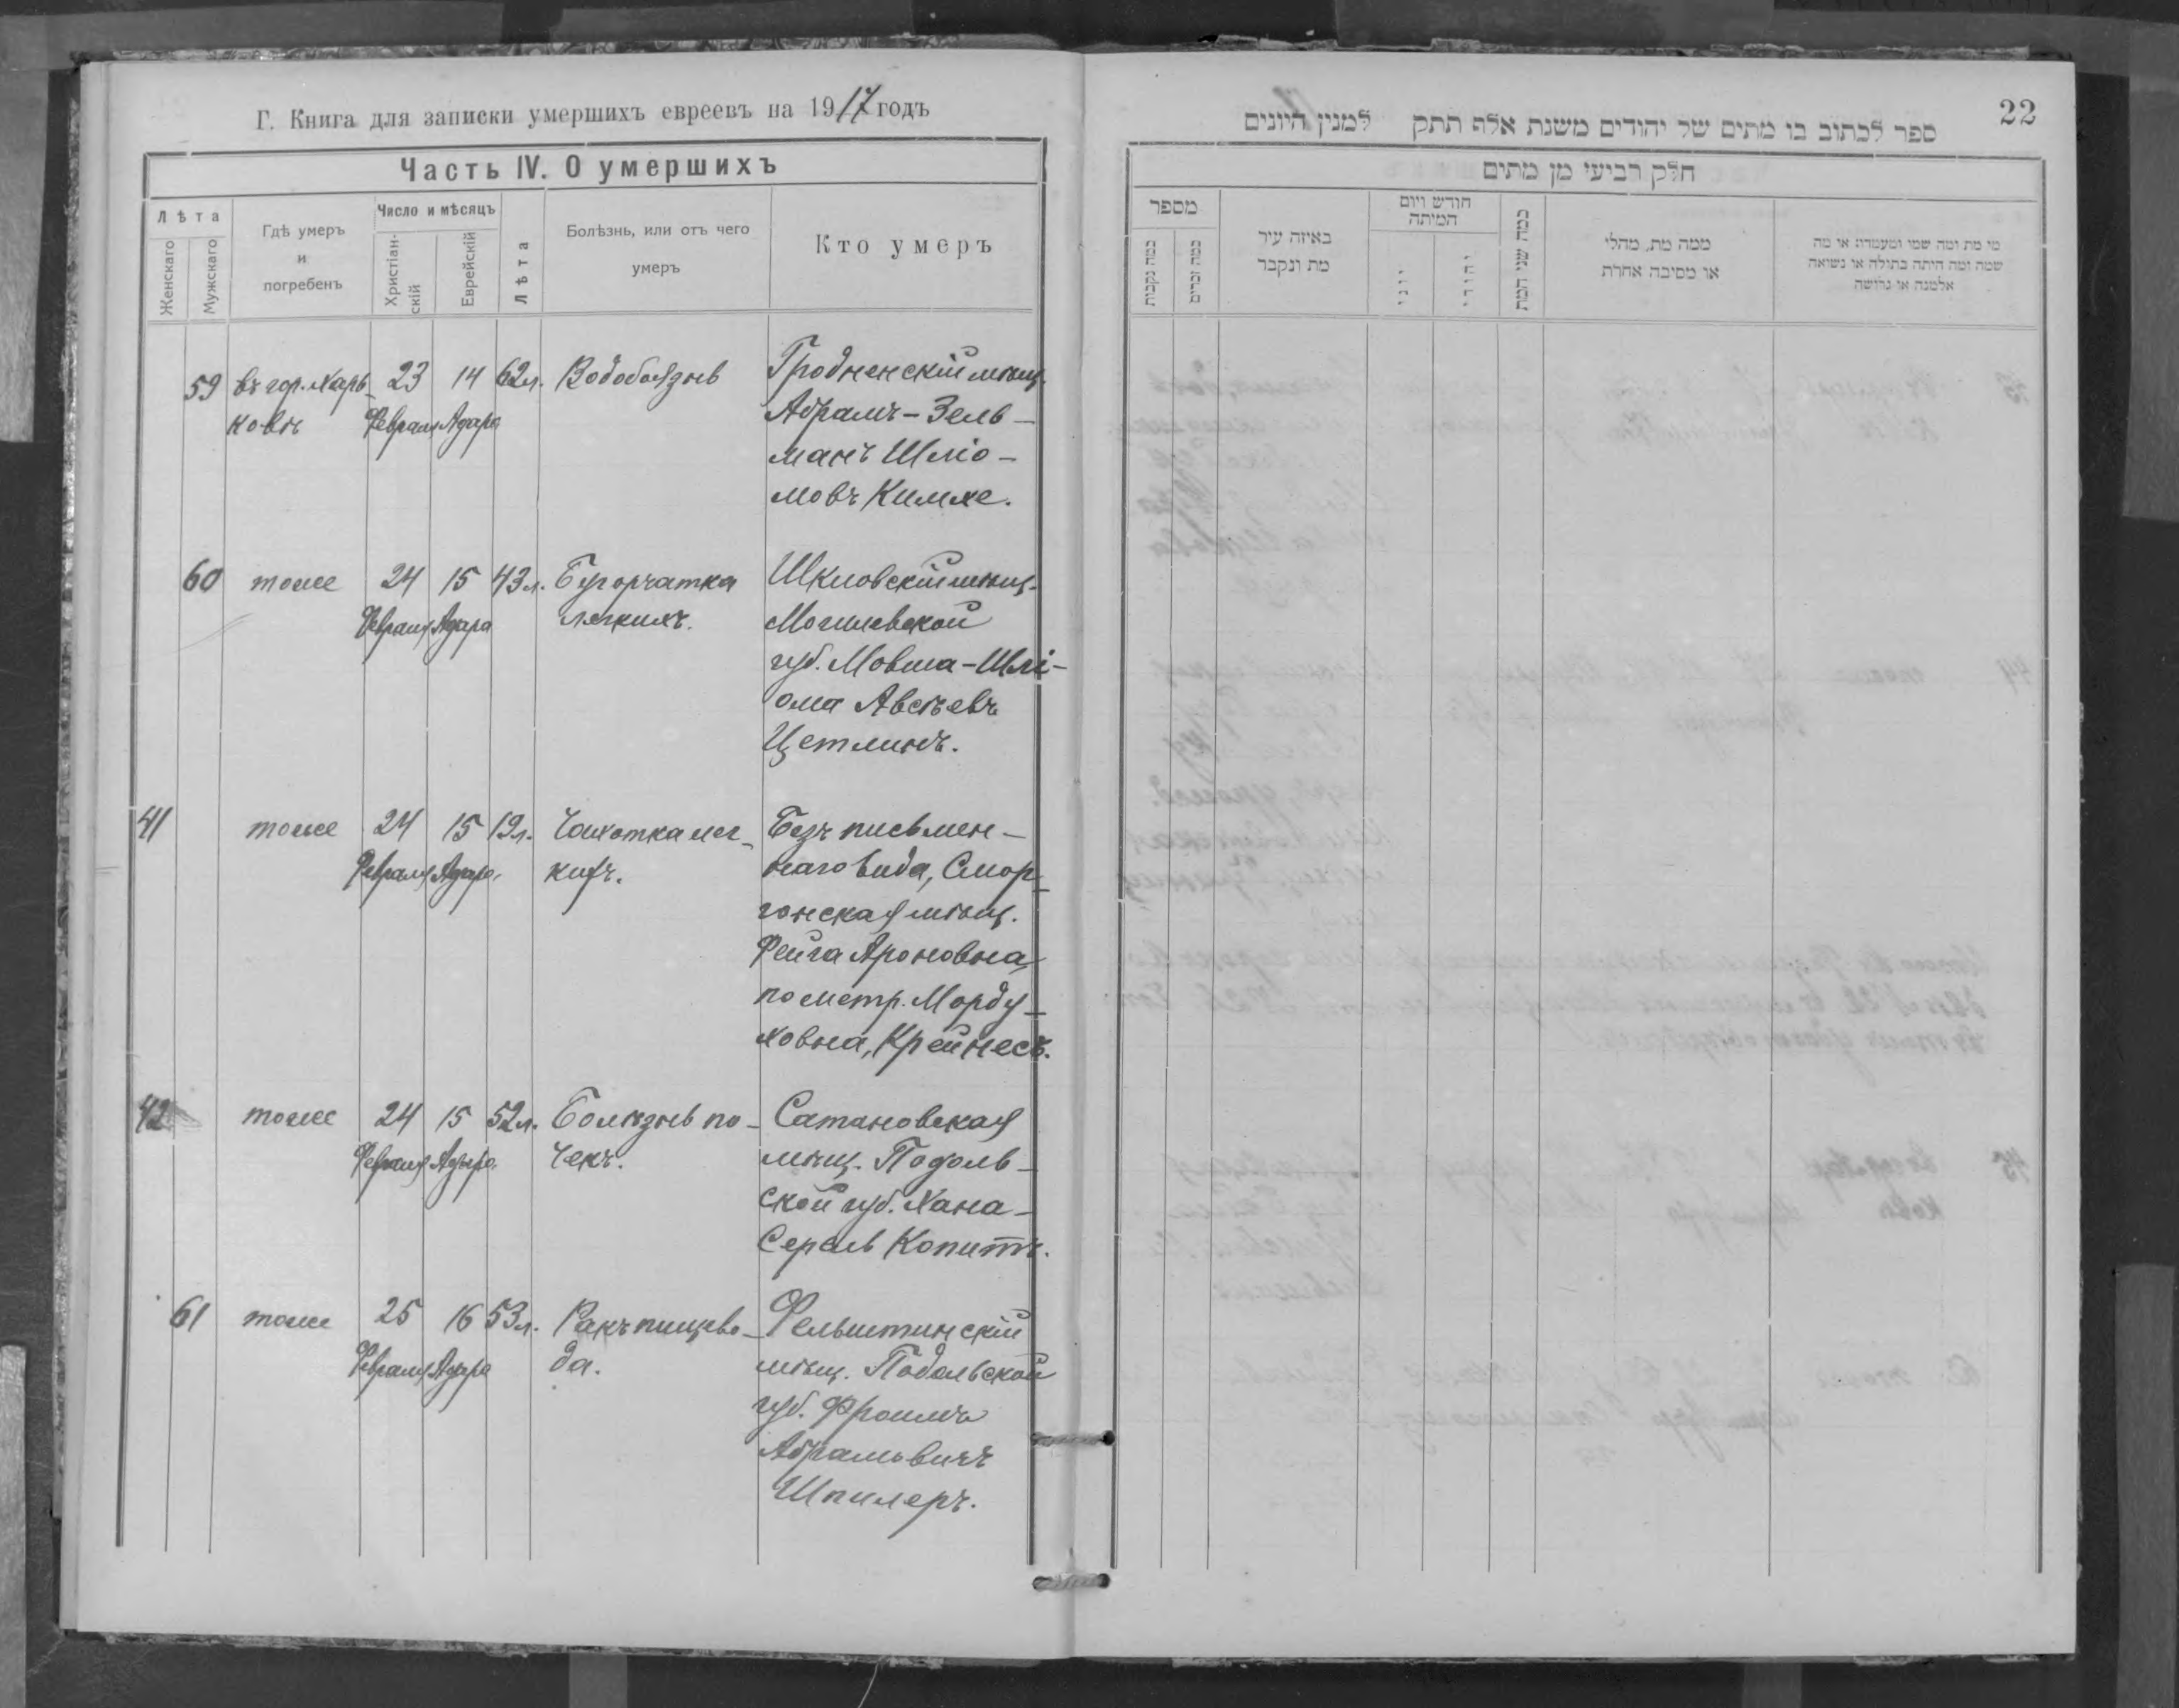 Г. Книга для записки умершихъ евреевъ на 1917 годъ
Часть IV. О умершихъ
Лѣта
Женскаго
Мужскаго
Гдѣ умеръ
и
погребенъ
Число и мѣсяцъ
Христіан-
скій
Еврейскій
Лѣта
Болѣзнь, или отъ чего
умеръ
Кто умеръ
59 въ гор. Харь- 23 14 62 л. Водобоязнь Гродненскій мѣщ.
ковѣ Февраля Адара Абрамъ-Зель-
манъ Шліо-
мовъ Кимхе.
60 тоже 24 15 43 л. Бугорчатка Шкловскій мѣщ.
Февраля Адара легкихъ. Могилевской
губ. Мовша-Шлі-
ома Авсѣевъ
Цетлинъ.
41 тоже 24 15 19 л. Чахотка лег- Безъ письмен-
Февраля Адара кихъ. наго вида, Смор-
гонская мѣщ.
Фейга Ароновна,
по метр. Морду-
ховна, Крейнесъ.
42 тоже 24 15 52 л. Болѣзнь по- Сатановская
Февраля Адара чекъ. мѣщ. Подоль-
ской губ. Хана-
Серель Копитъ.
61 тоже 25 16 53 л. Ракъ пищево- Фельштинскій
Февраля Адара да. мѣщ. Подольской
губ. Фроимъ
Абрамовичъ
Шпилеръ.
22
ספר לכתוב בו מתים של יהודים משנת אלף תתק 17 למנין היונים
חלק רביעי מן מתים
מספר
כמה נקבות
כמה זכרים
באיזה עיר
מת ונקבר
חודש ויום
המיתה
יוני
יהודי
כמה שני המת
ממה מת, מחלי
או מסיבה אחרת
מי מת ומה שמו ומעמדו או מה
שמה ומה היתה בתולה או נשואה
אלמנה או גרושה